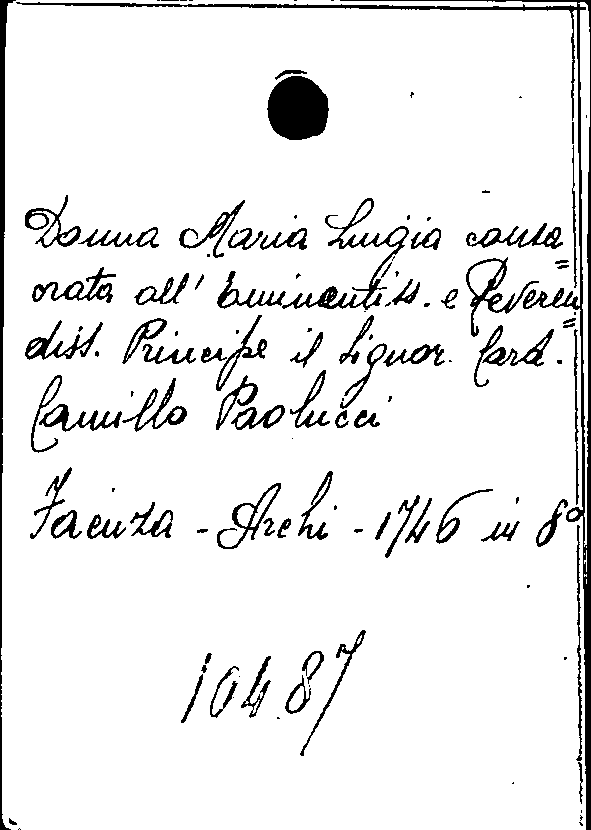 Donna Maria Luigia consa=
crata all' Eminentiss. e Reveren=
diss. Principe il Signor. Card.
Camillo Paolucci
Faenza - Archi - 1746 in 8°
10487